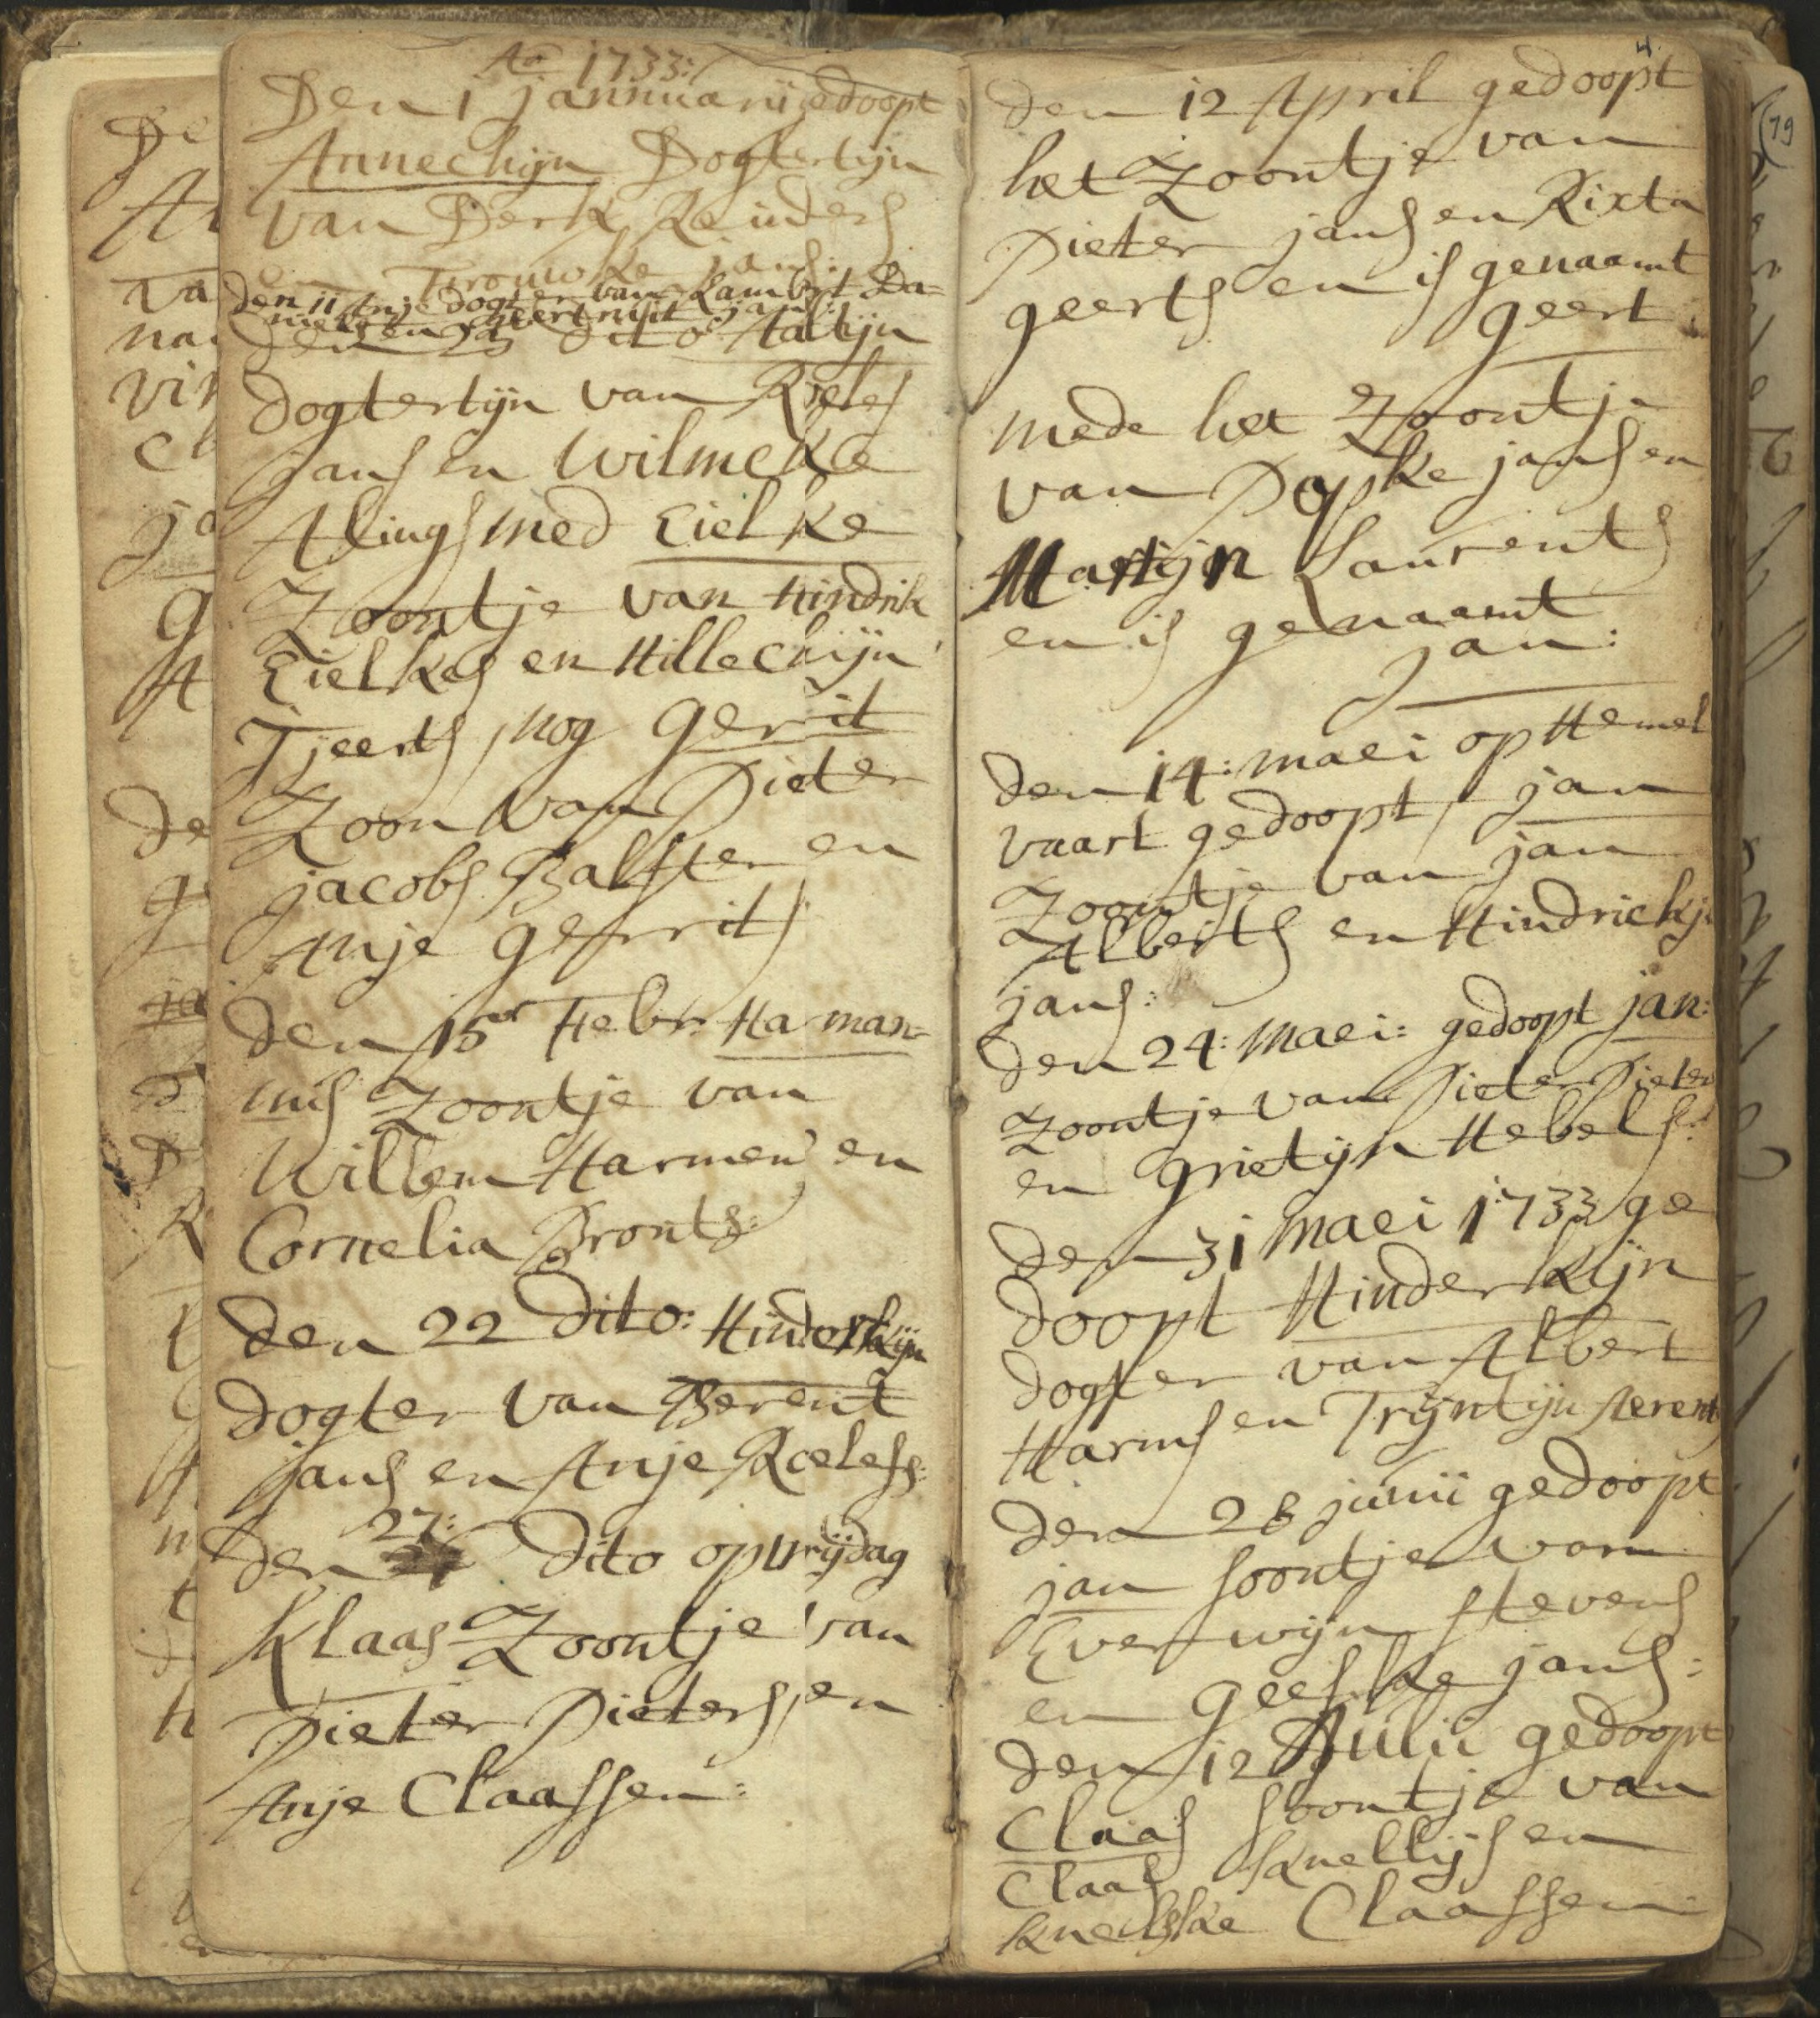 Ao 1733:
Den 1 jannuarii gedoopt
Annechijn Dogtertijn
van Derk Reinders
en Trouwke jans:
den 11 Anje dogter van Lambert Da=
niels en geertruit jans:
den 25 dito Aaltijn
dogtertijn van Roelef
jans en Wilmcke
Alings med Eielke
Zoontje van Hindrik
Eielkes en Hillechijn
Tjeerts, nog Gerrit
Zoon van Pieter
jacobs Balster en
Anje gerrits
den 15 Febr. Harman=
nus Zoontje van
Willem Harmen en
Cornelia Bronts:
den 22 dito: Hinderkijn
dogter van Berent
jans en Anje Roelefs:
den 27: dito op vrijdag
Klaas Zoontje van
Pieter Pieters, en
Anje Claassen:
4.
den 12 April gedoopt
het Zoontje van
Pieter jans en Rixta
geerts en is genaamt
geert
mede het Zoontje
van Popke jans en
Martijn Laurents
en is genaamt
jan:
den 14: maei op Hemel
vaart gedoopt, jan
Zoontje van jan
Alberts en Hindrickje
jans:
den 24: maei: gedoopt jan:
Zoontje van Pieter Pieters
en grietijn Hebels:
den 31 maei 1733 ge
doopt Hinderkijn
dogter van Albert
Harms en Trijntijn Aerents
den 28 junii gedoopt
jan soontje van
Everwijn stevens
en geeske jans:
den 12 Julii gedoopt
Claas soontje van
Claas Knellijs en
Knelske Claassen
79